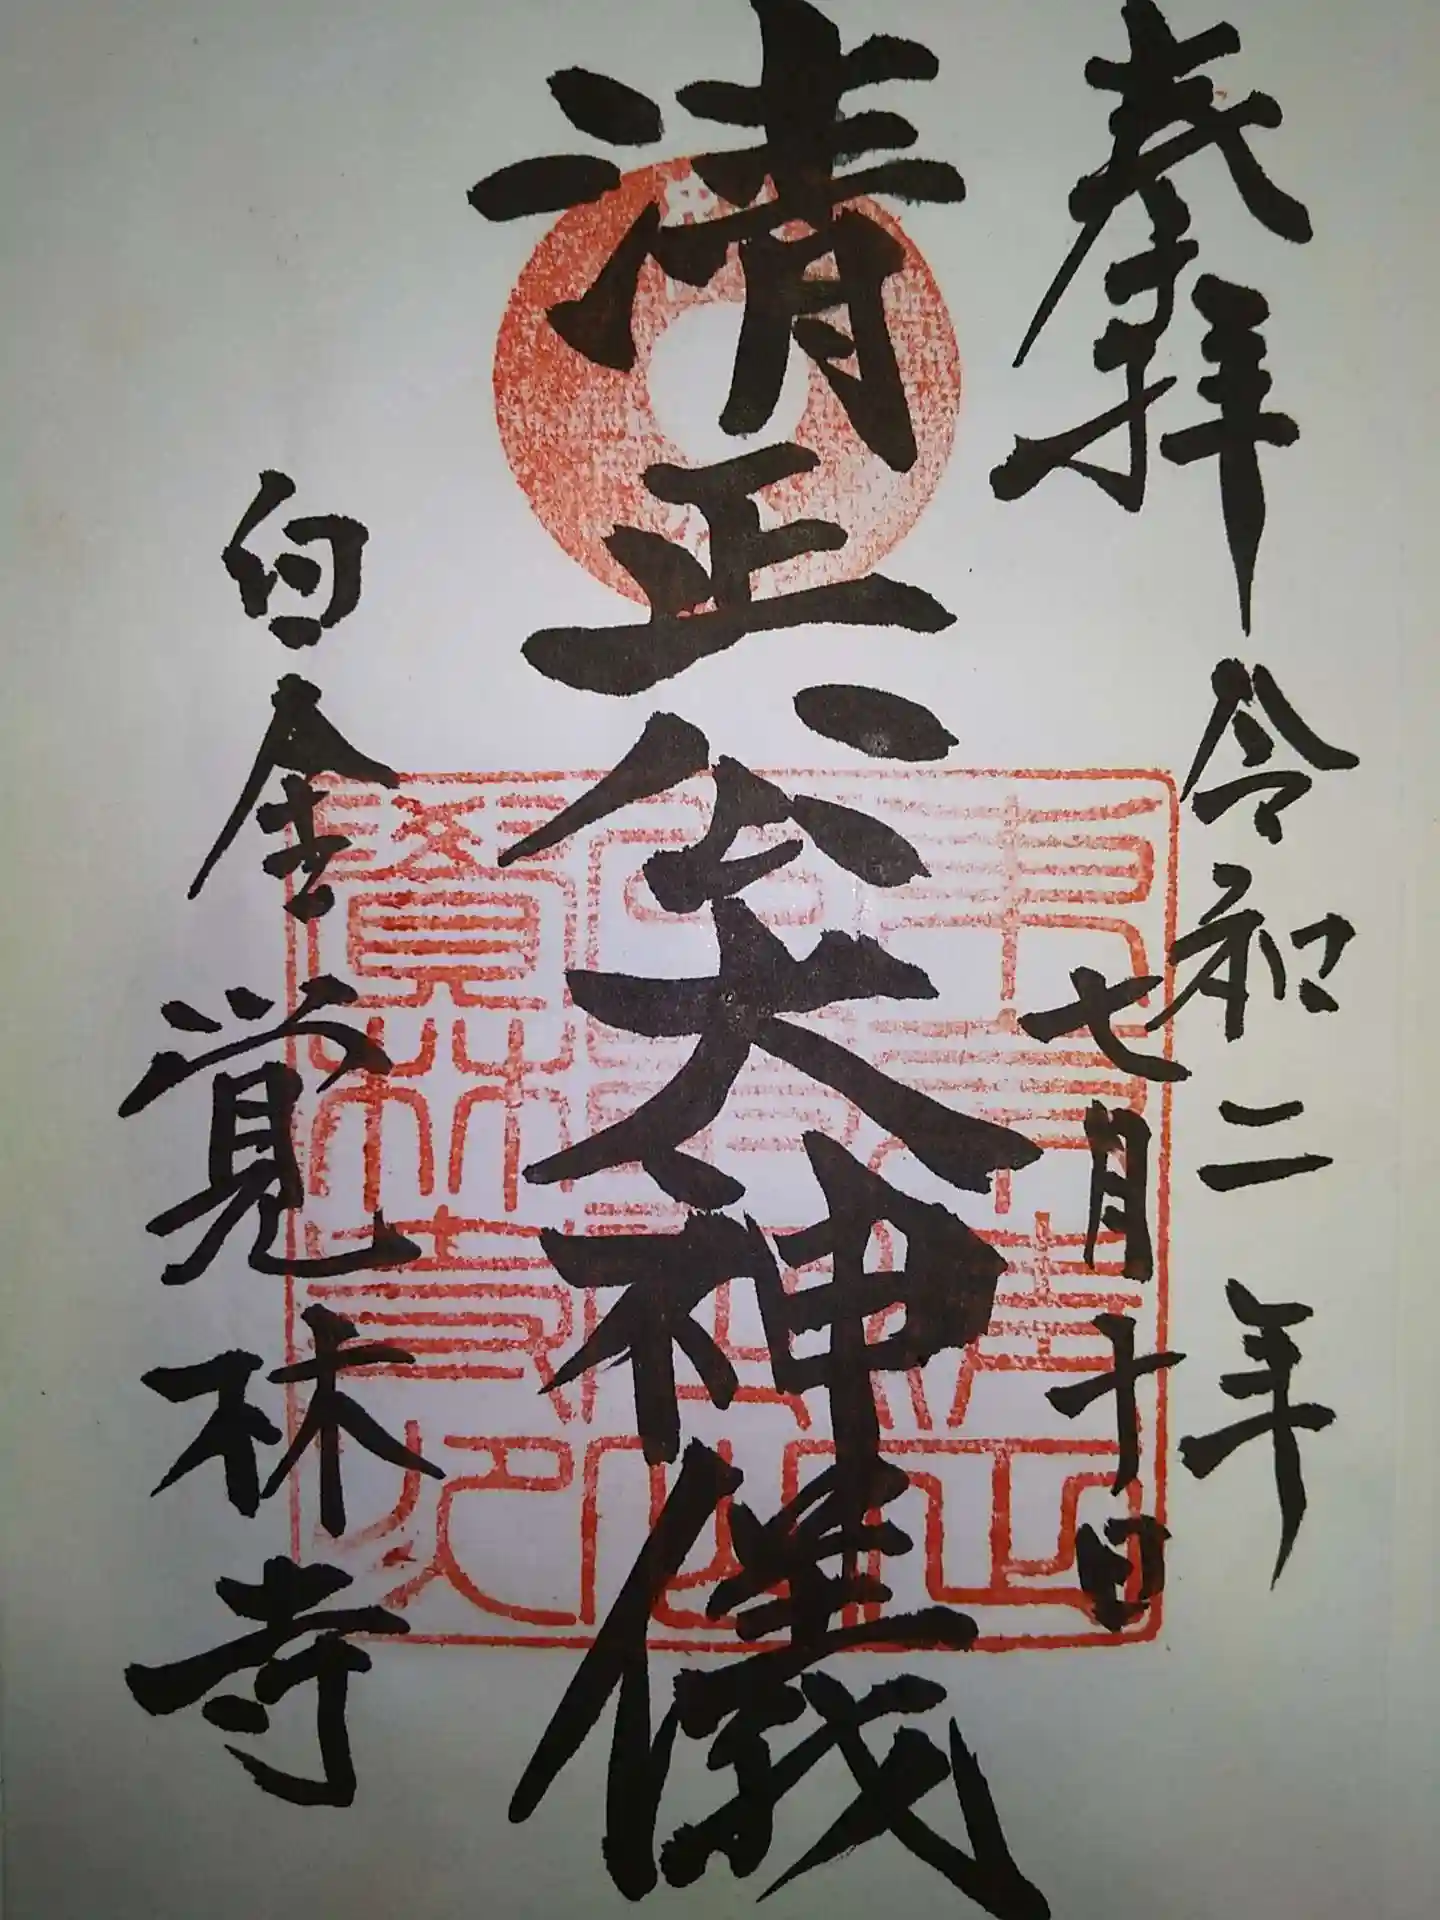 奉拝
令和二年
七月十日
清正公大神儀
白金
覚林寺